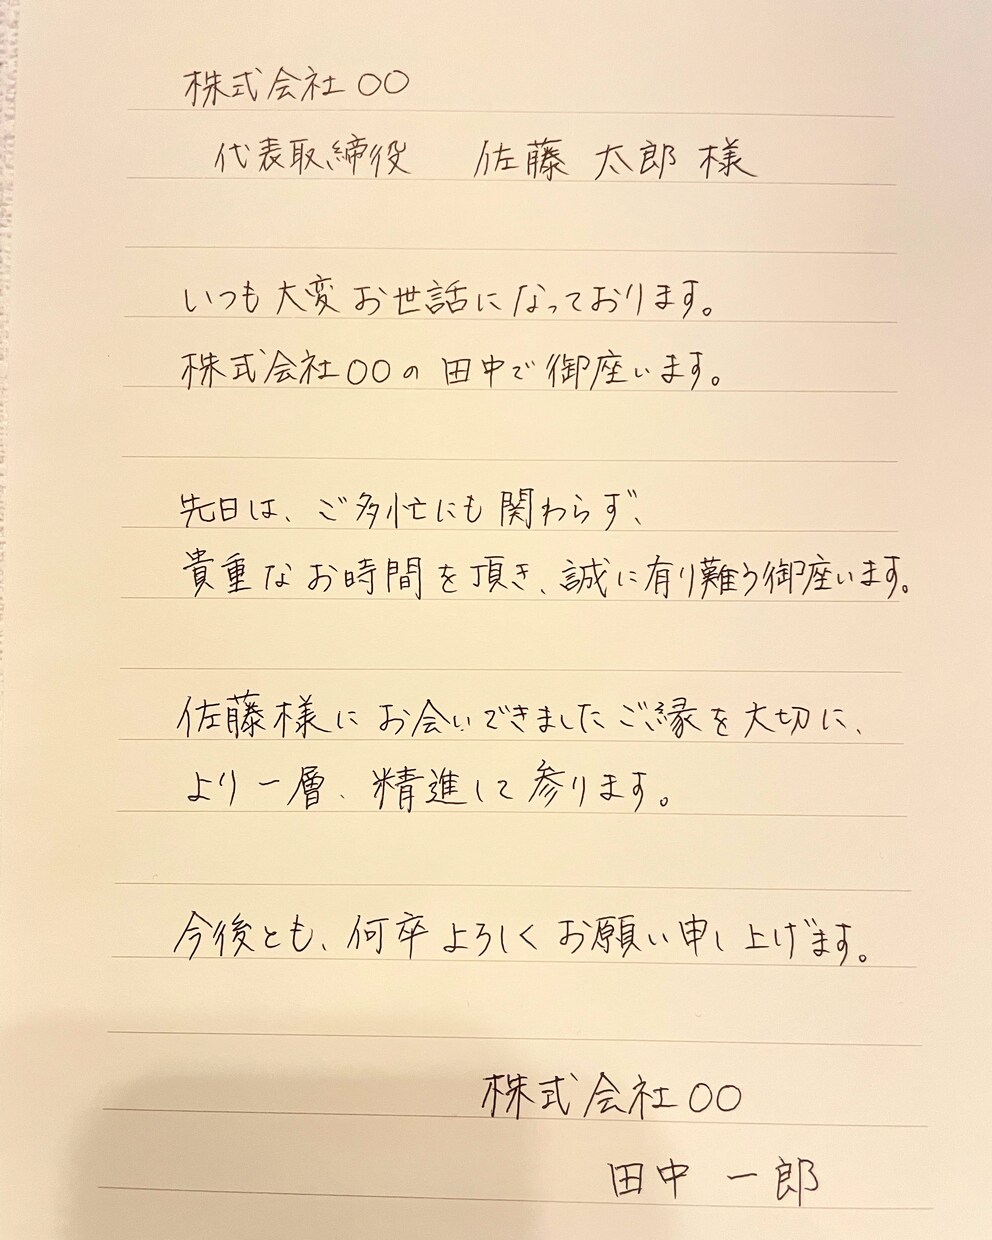 株式会社〇〇
代表取締役 佐藤 太郎 様
いつも大変お世話になっております。
株式会社〇〇の田中で御座います。
先日は、ご多忙にも関わらず、
貴重なお時間を頂き、誠に有り難う御座います。
佐藤様にお会いできましたご縁を大切に、
より一層、精進して参ります。
今後とも、何卒よろしくお願い申し上げます。
株式会社〇〇
田中 一郎